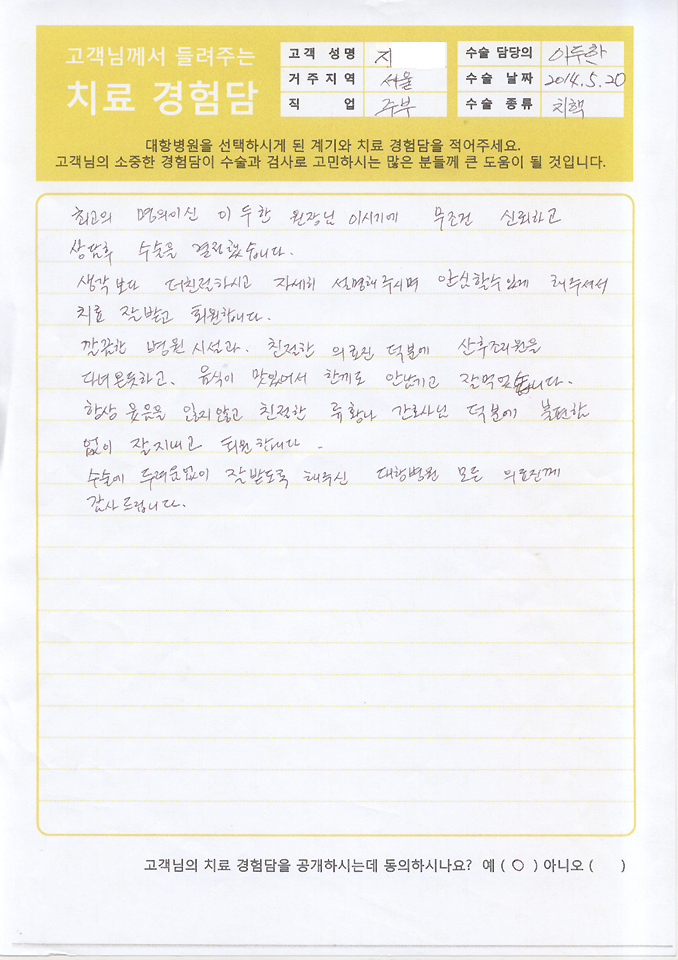 고객님께서 들려주는
치료 경험담
고객 성명 지
거주지역 서울
직 업 주부
수술 담당의 이두한
수술 날짜 2014.5.20
수술 종류 치핵
대항병원을 선택하시게 된 계기와 치료 경험담을 적어주세요.
고객님의 소중한 경험담이 수술과 검사로 고민하시는 많은 분들께 큰 도움이 될 것입니다.
최고의 명의이신 이두한 원장님 이시기에 무조건 신뢰하고
상담후 수술을 결정했습니다.
생각보다 더친절하시고 자세히 설명해주시며 안심할수있게 해주셔서
치료 잘받고 퇴원합니다.
깔끔한 병원시설과. 친절한 의료진 덕분에 산후조리원을
다녀온듯하고. 음식이 맛있어서 한끼도 안남기고 잘먹었습니다.
항상 웃음을 잃지않고 친절한 류황나 간호사님 덕분에 불편함
없이 잘지내고 퇴원합니다.
수술에 두려움없이 잘받도록 해주신 대항병원 모든 의료진께
감사드립니다.
고객님의 치료 경험담을 공개하시는데 동의하시나요? 예 ( ○ ) 아니오 ( )